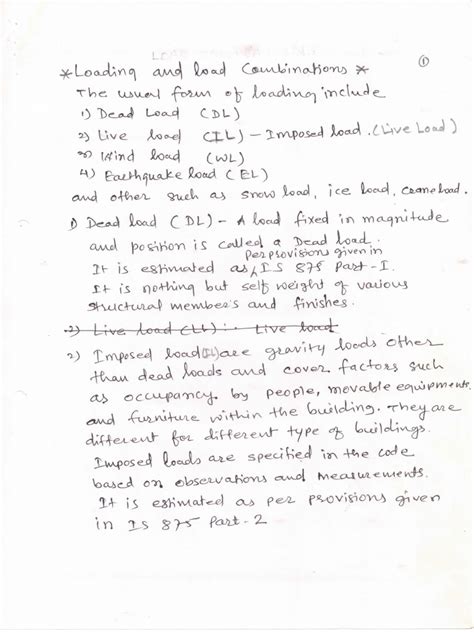 ①
* Loading and load Combinations *
The usual form of loading include
1) Dead Load (DL)
2) Live load (IL) – Imposed load. (Live Load)
3) Wind load (WL)
4) Earthquake load (EL)
and other such as snow load, ice load, crane load.
1) Dead load (DL) – A load fixed in magnitude
and position is called a Dead load.
per provisions given in
It is estimated as ^ IS 875 Part - I.
It is nothing but self weight of various
structural members and finishes.
2) Live load (LL) : Live load
2) Imposed load (IL) are gravity loads other
than dead loads and cover factors such
as occupancy by people, movable equipments
and furniture within the building. They are
different for different type of buildings.
Imposed loads are specified in the code
based on observations and measurements.
It is estimated as per provisions given
in IS 875 Part - 2